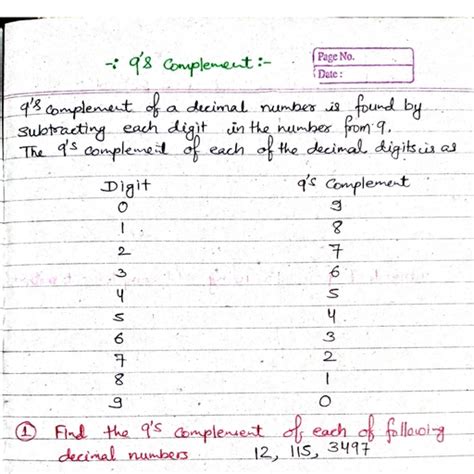 -: 9's Complement :-
Page No.
Date :
9's complement of a decimal number is found by
subtracting each digit in the number from 9.
The 9's complement of each of the decimal digits is as
Digit 9's Complement
0 9
1 8
2 7
3 6
4 5
5 4
6 3
7 2
8 1
9 0
① Find the 9's complement of each of following
decimal numbers 12, 115, 3497